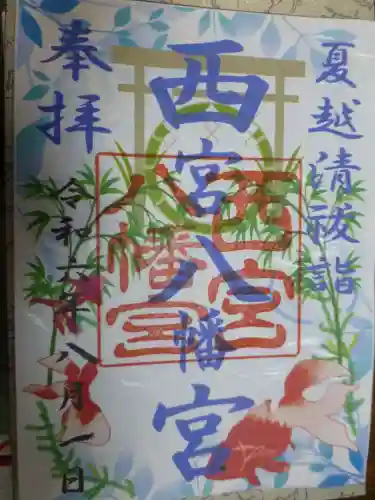 夏越清祓詣
西宮八幡宮
西宮
八幡宮
奉拝
令和六年八月一日